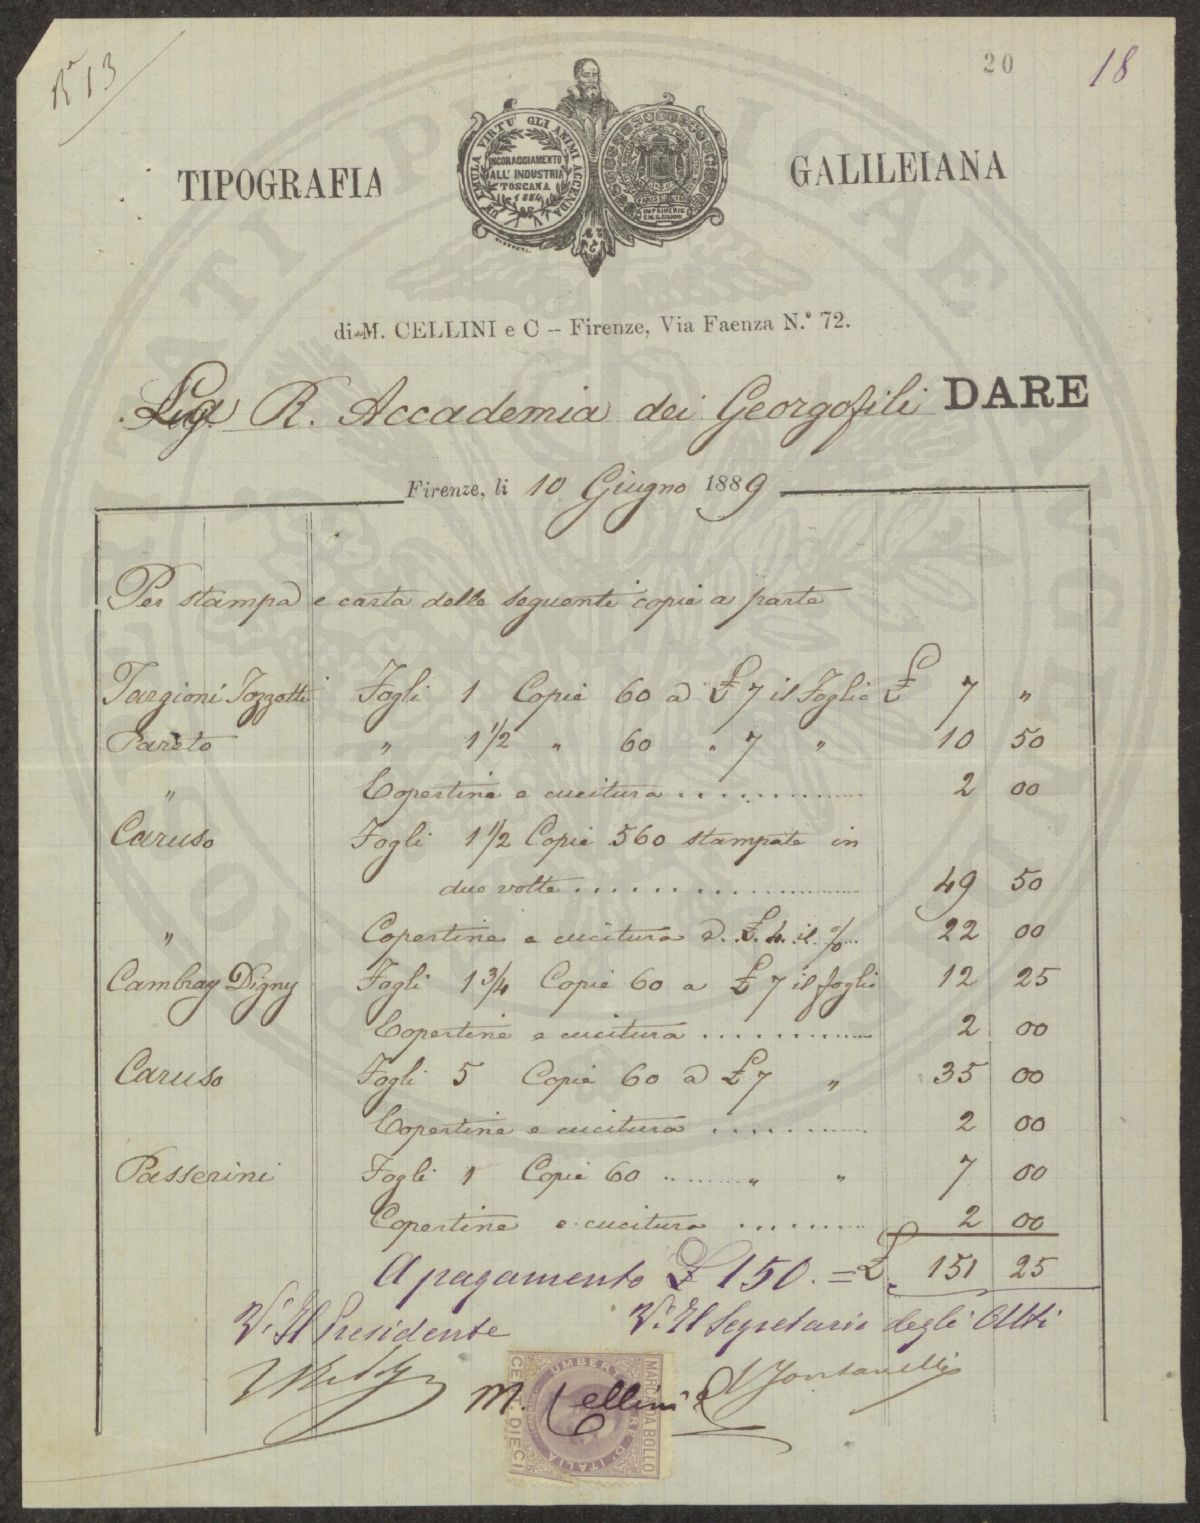 Ra 13
20
18
TIPOGRAFIA GALILEIANA
DE EMULA VIRTU' GLI ANIMI ACCENDA
INCORAGGIAMENTO
ALL' INDUSTRIA
TOSCANA
1854
di M. CELLINI e C – Firenze, Via Faenza N.° 72.
La R. Accademia dei Georgofili DARE
Firenze, li 10 Giugno 1889
Per stampa e carta delle seguenti copie a parte
Targioni Tozzetti Fogli 1 Copie 60 a £ 7 il Foglio £ 7 "
Pareto " 1 1/2 " 60 " 7 " 10 50
" Copertine e cucitura .............. 2 00
Caruso Fogli 1 1/2 Copie 560 stampate in
due volte .................... 49 50
" Copertine e cucitura a £ 4 il % 22 00
Cambray Digny Fogli 1 3/4 Copie 60 a £ 7 il foglio 12 25
Copertine e cucitura ............ 2 00
Caruso Fogli 5 Copie 60 a £ 7 " 35 00
Copertine e cucitura ............ 2 00
Passerini Fogli 1 Copie 60 ........ " " 7 00
Copertine e cucitura .......... 2 00
A pagamento £ 150. = £ 151 25
V° Il Presidente V° Il Segretario degli Atti
M. Cellini e C
Fontanelli
MARCA DA BOLLO
UMBERTO RE D'ITALIA
CENT: DIECI